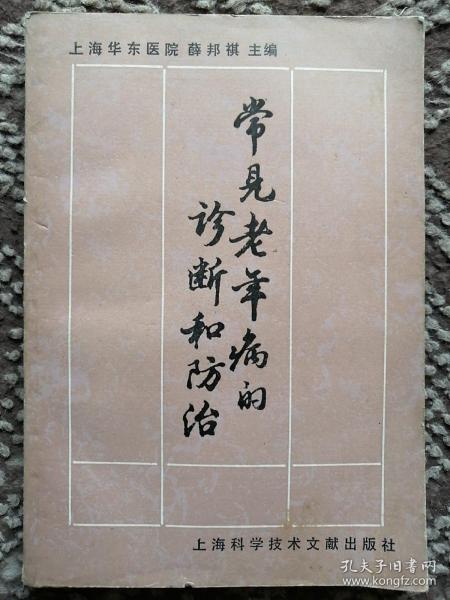 上海华东医院 薛邦祺 主编
常见老年病的
诊断和防治
上海科学技术文献出版社
孔夫子旧书网
www.kongfz.com